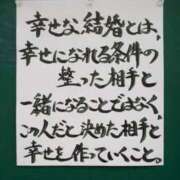 幸せな結婚とは、
幸せになれる条件の
整った相手と
一緒になることではなく、
この人だと決めた相手と
幸せを作っていくこと。